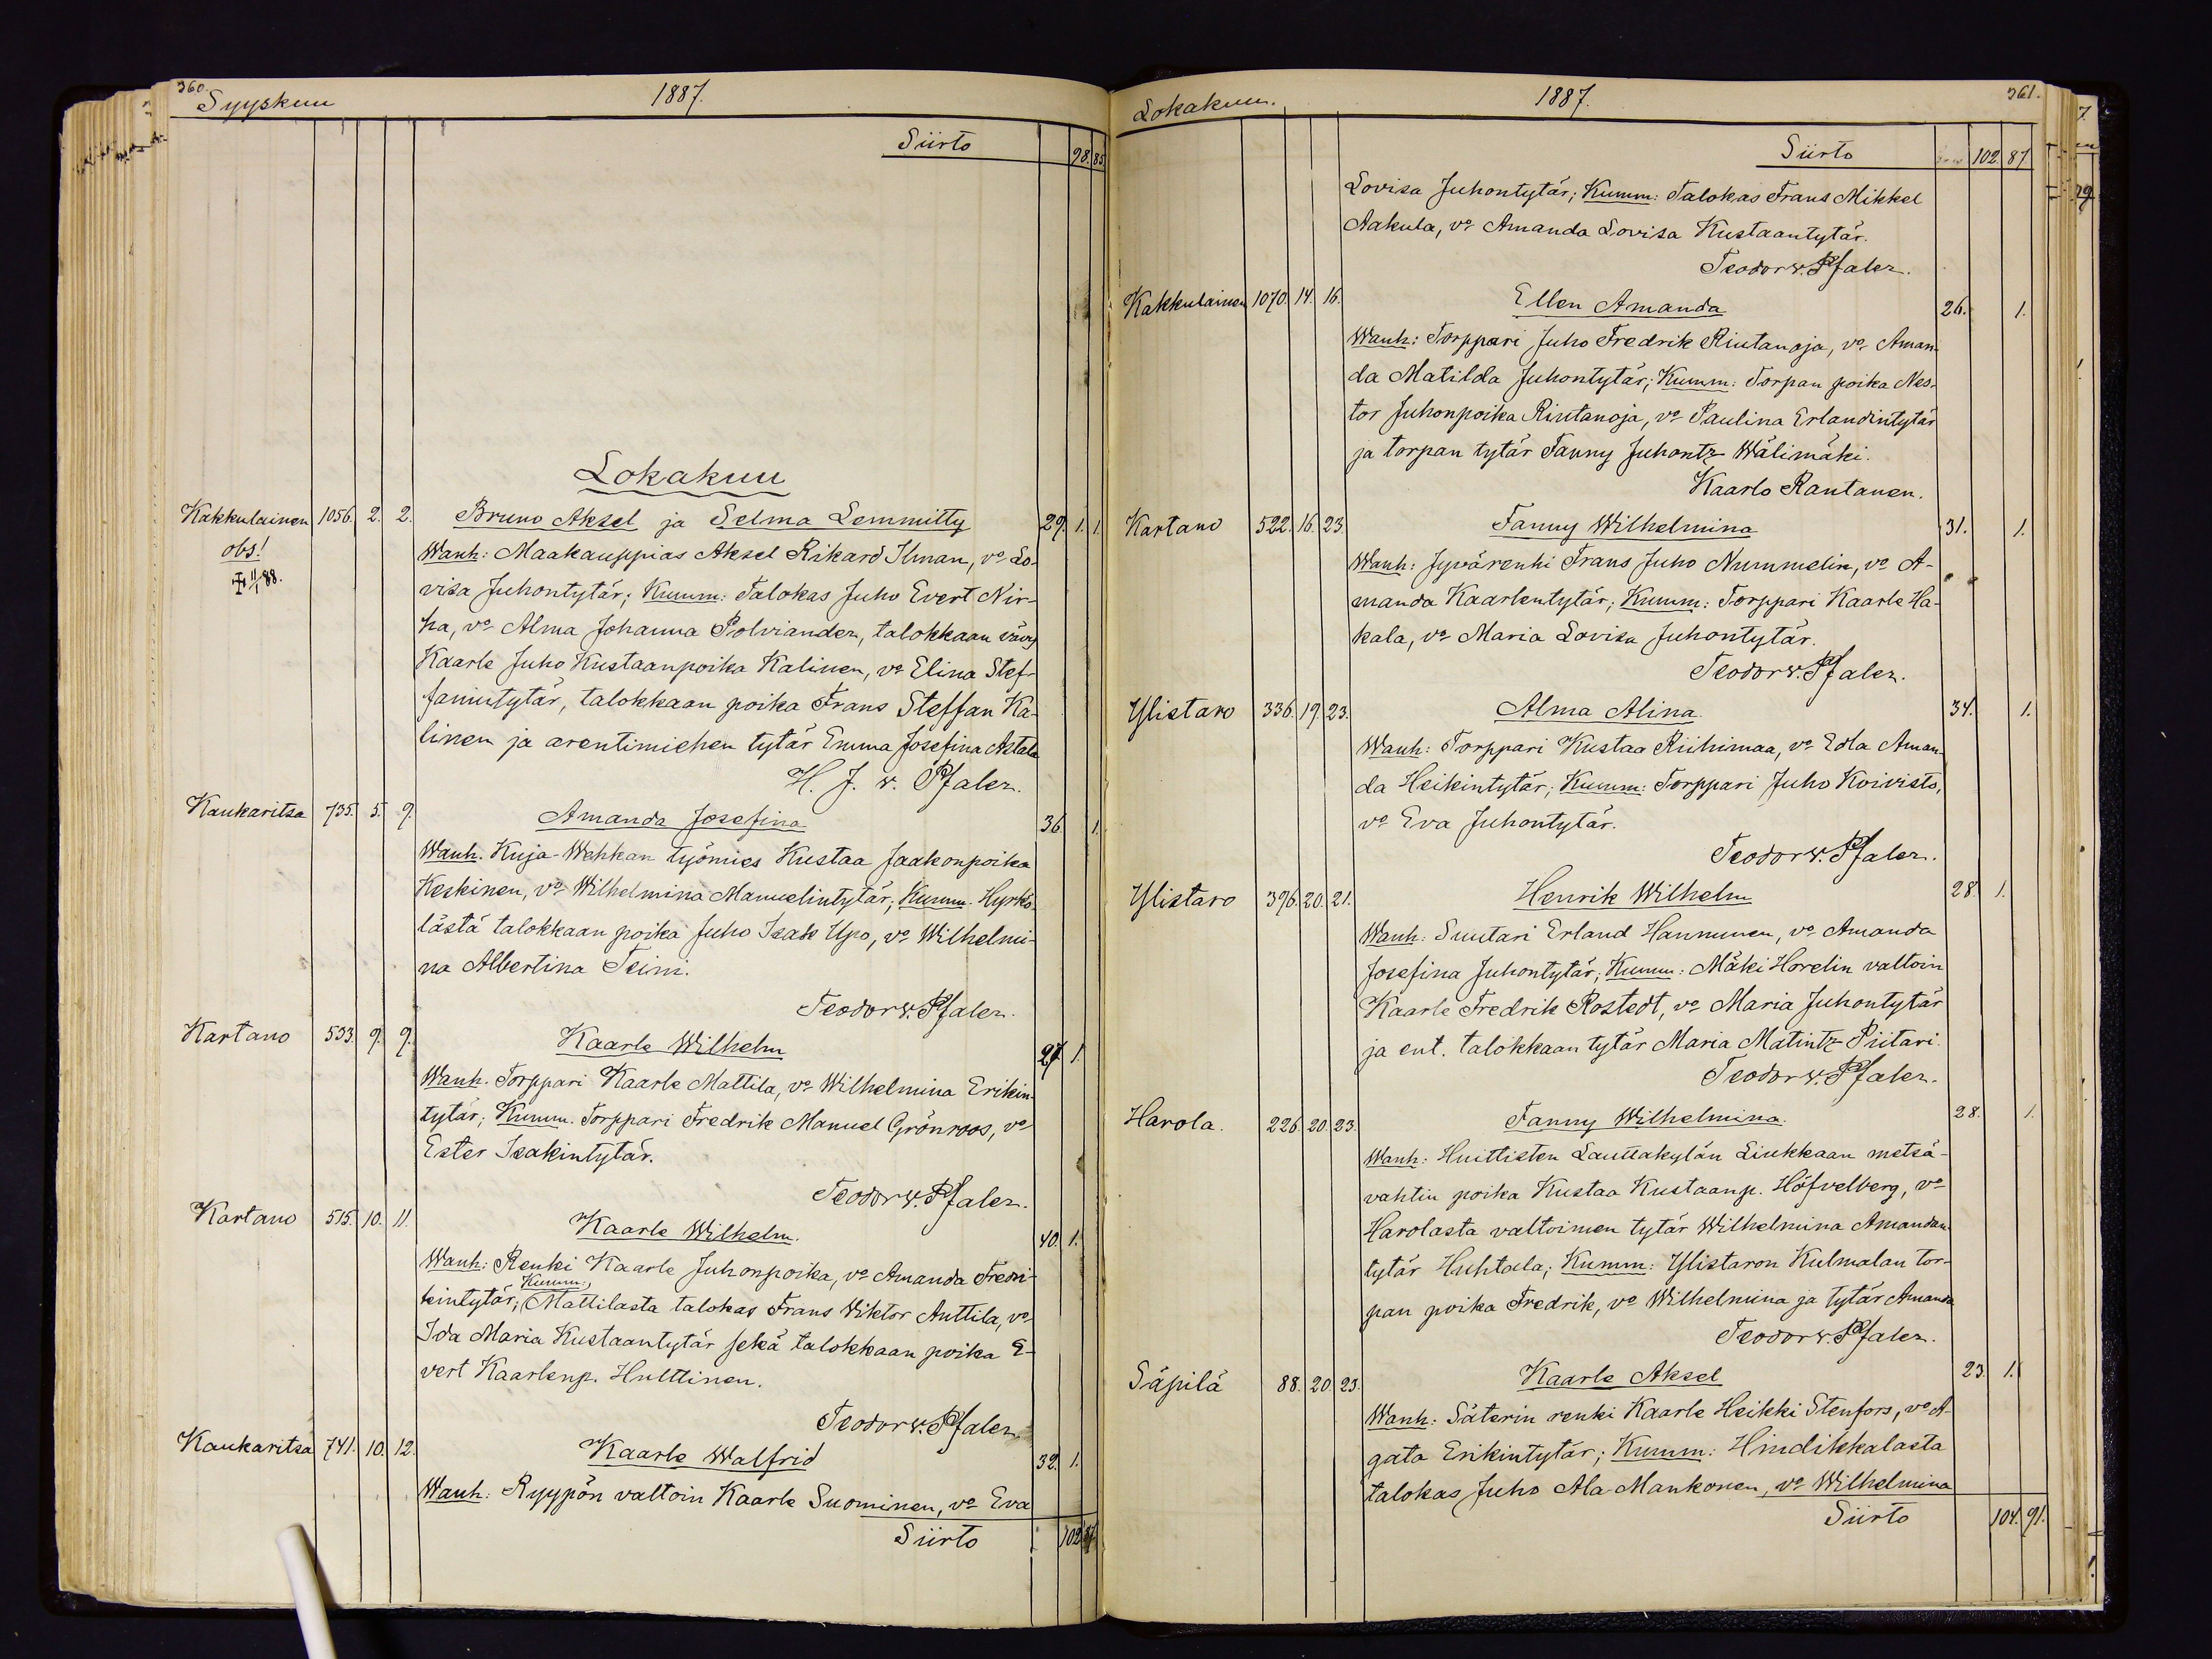 360.
Syyskuu 1887.
Siirto 98. 85
Lokakuu
Kakkulainen 1056. 2. 2. Bruno Aksel ja Selma Lemmitty 29. 1. 1.
obs! Wanh: Maakauppias Aksel Rikard Ilman, vo Lo-
11/1 88. visa Juhontytär; Kumm: Talokas Juho Evert Nir-
ha, vo Alma Johanna Polviander, talokkaan vävy
Kaarle Juho Kustaanpoika Kalinen, vo Elina Stef-
fanintytär, talokkaan poika Frans Steffan Ka-
linen ja arentimiehen tytär Emma Josefina Astala
H. J. v. Pfaler.
Kaukaritsa 735. 5. 9. Amanda Josefina 36. 1.
Wanh. Kuja-Wehkan työmies Kustaa Jaakonpoika
Keskinen, vo Wilhelmina Manuelintytär; Kumm. Hyrkö-
lästä talokkaan poika Juho Isak Upo, vo Wilhelmi-
na Albertina Teini.
Teodor v. Pfaler.
Kartano 533. 9. 9. Kaarle Wilhelm 27. 1.
Wanh. Torppari Kaarle Mattila, vo Wilhelmina Erikin-
tytär; Kumm. Torppari Fredrik Manuel Grönroos, vo
Ester Isakintytär.
Teodor v. Pfaler.
Kartano 515. 10. 11. Kaarle Wilhelm. 40. 1.
Wanh: Renki Kaarle Juhonpoika, vo Amanda Fredri-
Kumm:
kintytär; Mattilasta talokas Frans Viktor Anttila, vo
Ida Maria Kustaantytär sekä talokkaan poika E-
vert Kaarlenp. Hulttinen.
Teodor v. Pfaler
Kaukaritsa 741. 10. 12. Kaarle Walfrid 32. 1.
Wanh: Ryypön valtoin Kaarle Suominen, vo Eva
Siirto 102 87
361.
Lokakuu. 1887.
Siirto 102. 87.
Lovisa Juhontytär; Kumm: Talokas Frans Mikkel
Aakula, vo Amanda Lovisa Kustaantytär.
Teodor v. Pfaler.
Kakkulainen 1070. 14. 16. Ellen Amanda 26. 1.
Wanh: Torppari Juho Fredrik Rintanoja, vo Aman-
da Matilda Juhontytär; Kumm: Torpan poika Nes-
tor Juhonpoika Rintanoja, vo Paulina Erlandintytär
ja torpan tytär Fanny Juhontr Wälimäki.
Kaarlo Rantanen.
Kartano 522. 16. 23. Fanny Wilhelmina 31. 1.
Wanh: Jyvärenki Frans Juho Nummelin, vo A-
manda Kaarlentytär; Kumm: Torppari Kaarle Ha-
kala, vo Maria Lovisa Juhontytär.
Teodor v. Pfaler.
Ylistaro 336. 19. 23. Alma Alina. 34. 1.
Wanh: Torppari Kustaa Riihimaa, vo Edla Aman-
da Heikintytär; Kumm: Torppari Juho Koivisto,
vo Eva Juhontytär.
Teodor v. Pfaler.
Ylistaro 396. 20. 21. Henrik Wilhelm 28. 1.
Wanh: Suutari Erland Hannunen, vo Amanda
Josefina Juhontytär; Kumm: Mäki Horelin valtoin
Kaarle Fredrik Rostedt, vo Maria Juhontytär
ja ent. talokkaan tytär Maria Matintr Piitari.
Teodor v. Pfaler.
Harola. 226. 20. 23. Fanny Wilhelmina. 28. 1.
Wanh: Huittisten Lauttakylän Liukkaan metsä-
vahtin poika Kustaa Kustaanp. Höfvelberg, vo
Harolasta valtoimen tytär Wilhelmina Amandan-
tytär Huhtala; Kumm: Ylistaron Kulmalan tor-
pan poika Fredrik, vo Wilhelmina ja tytär Amanda
Teodor v. Pfaler.
Säpilä 88. 20. 23. Kaarle Aksel 23. 1.
Wanh: Säterin renki Kaarle Heikki Stenfors, vo A-
gata Erikintytär; Kumm: Hindikkalasta
talokas Juho Ala-Mankonen, vo Wilhelmina
Siirto 104. 91.